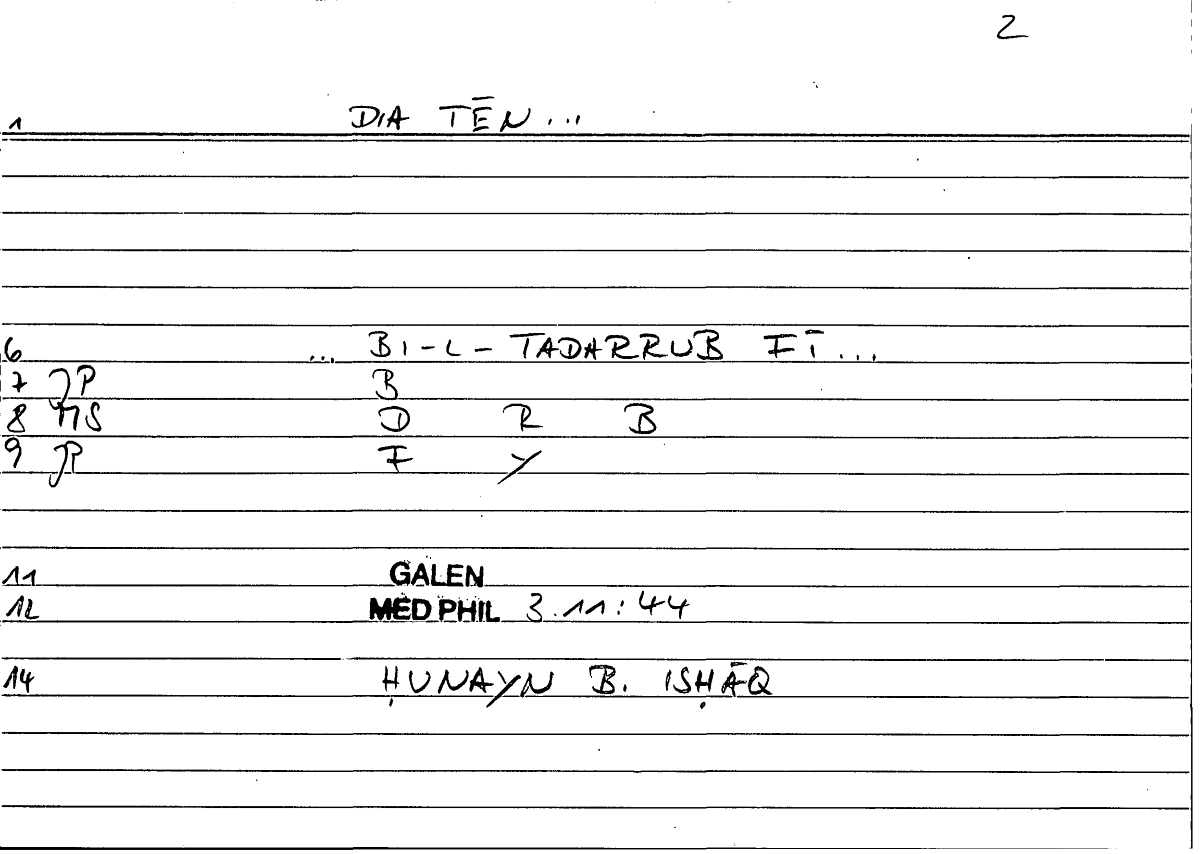 2
1 DIA TĒN ...
6 ... BI-L-TADARRUB FĪ ...
7 JP B
8 MS D R B
9 JP F Y
11 GALEN
12 MED PHIL 3.11:44
14 ḤUNAYN B. ISḤĀQ